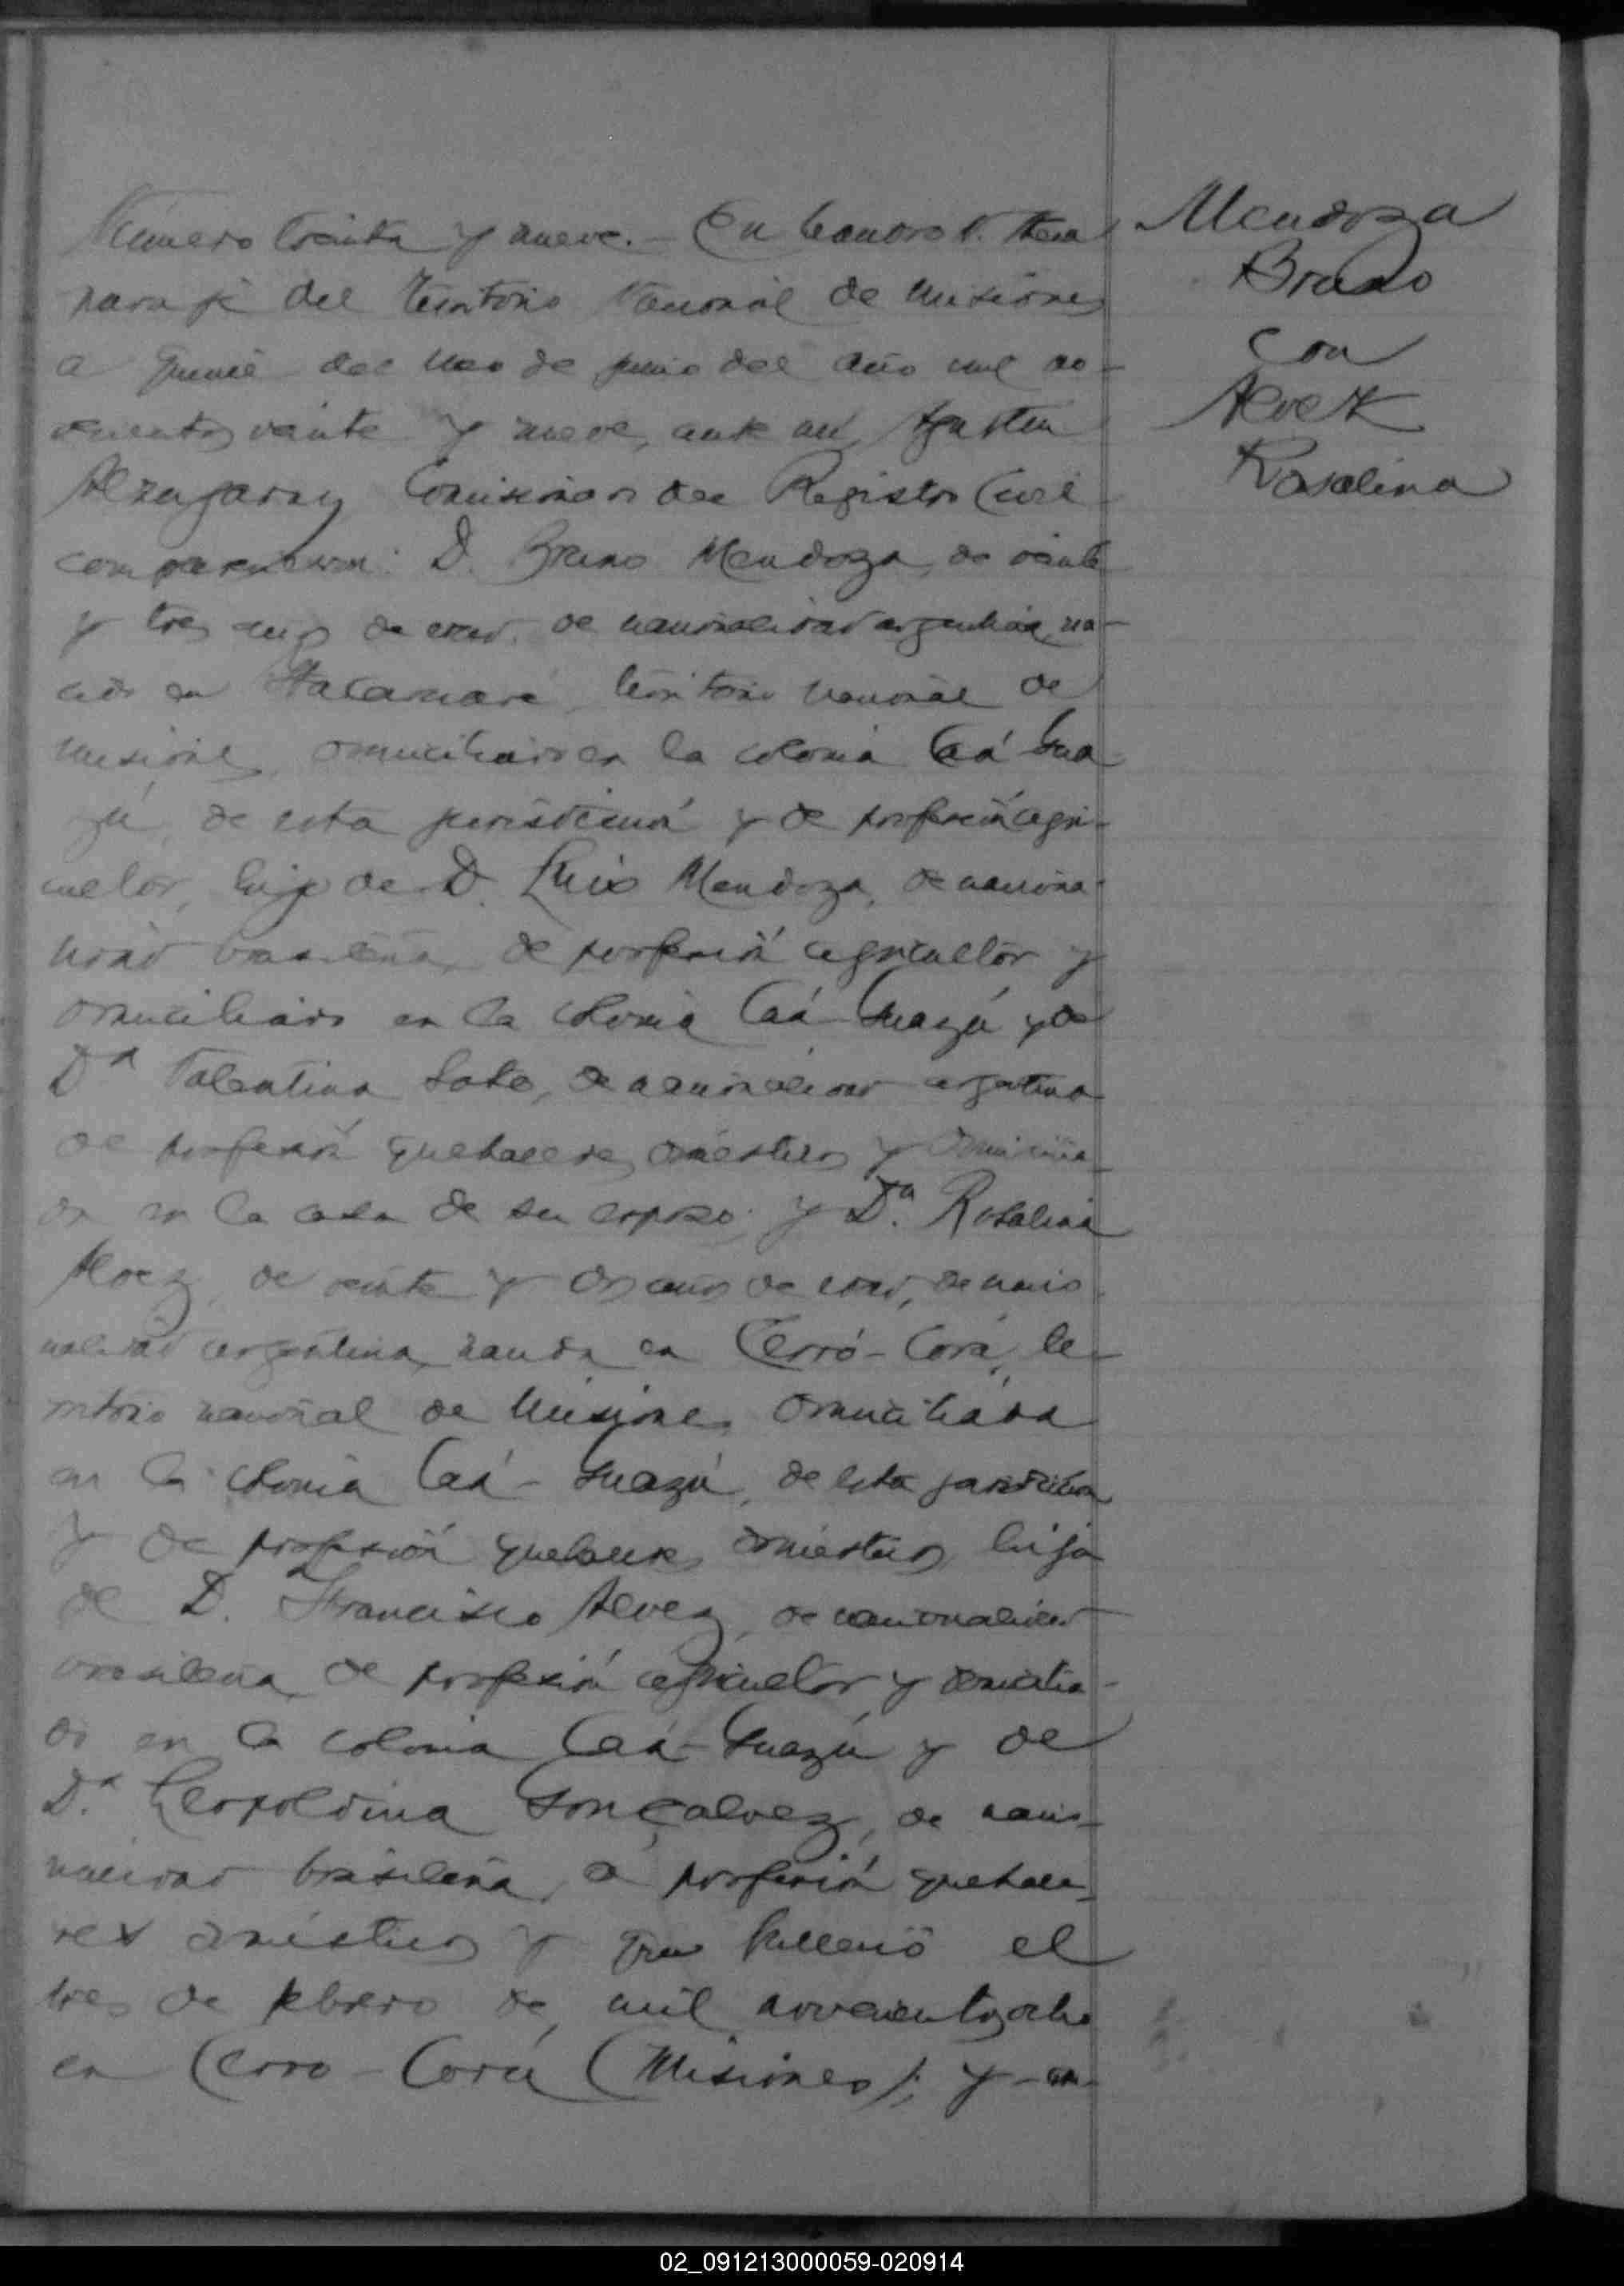 Número treinta y nueve. – En Leandro N. Alem
paraje del Territorio Nacional de Misiones
a quince del mes de junio del año mil no-
vecientos veinte y nueve, ante mi, Agustin
Alzugaray Comisionado del Registro Civil
comparecieron: D. Bruno Mendoza, de veinte
y tres años de edad, de nacionalidad argentina, na-
cido en Itacaruaré, territorio nacional de
Misiones, domiciliado en la colonia Caá Gua
zú, de esta jurisdicción y de profesión agri-
cultor, hijo de D. Luis Mendoza, de naciona-
lidad brasileña, de profesión agricultor y
domiciliado en la colonia Caá-Guazú y de
Dª Valentina Soto, de nacionalidad argentina
de profesión quehaceres domésticos y domicilia-
da en la casa de su esposo; y Dª. Rosalina
Alvez, de veinte y dos años de edad, de nacio
nalidad argentina, nacida en Cerró-Corá, te-
rritorio nacional de Misiones, domiciliada
en la colonia Caá-Guazú, de esta jurisdicción
y de profesión quehaceres domésticos, hija
de D. Francisco Alvez, de nacionalidad
brasileña, de profesión agricultor y domicilia-
do en la colonia Caá-Guazú y de
Dª. Leopoldina Gonçalvez, de nacio-
nalidad brasileña, de profesión quehace-
res domésticos y que falleció el
tres de febrero de mil novecientos ocho
en Cerro-Corá (Misiones); y –
Mendoza
Bruno
con
Alvez
Rosalina
02_091213000059-020914